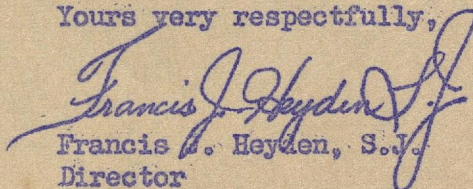 Yours very respectfully,
Francis J. Heyden S.J.
Francis J. Heyden, S.J.
Director